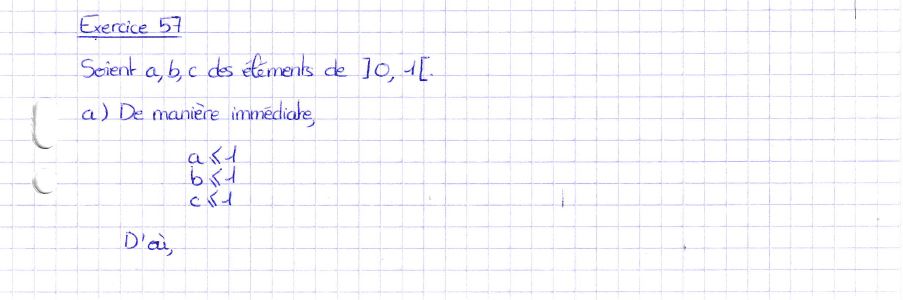 Exercice 57
Soient a, b, c des éléments de ]0, 1[.
a) De manière immédiate,
a ⩽ 1
b ⩽ 1
c ⩽ 1
D'où,